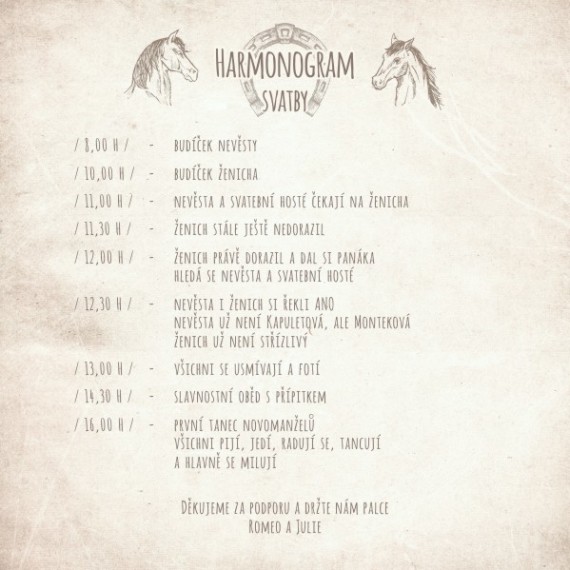 HARMONOGRAM
SVATBY
/ 8,00 H / - BUDÍČEK NEVĚSTY
/ 10,00 H / - BUDÍČEK ŽENICHA
/ 11,00 H / - NEVĚSTA A SVATEBNÍ HOSTÉ ČEKAJÍ NA ŽENICHA
/ 11,30 H / - ŽENICH STÁLE JEŠTĚ NEDORAZIL
/ 12,00 H / - ŽENICH PRÁVĚ DORAZIL A DAL SI PANÁKA
HLEDÁ SE NEVĚSTA A SVATEBNÍ HOSTÉ
/ 12,30 H / - NEVĚSTA I ŽENICH SI ŘEKLI ANO
NEVĚSTA UŽ NENÍ KAPULETOVÁ, ALE MONTEKOVÁ
ŽENICH UŽ NENÍ STŘÍZLIVÝ
/ 13,00 H / - VŠICHNI SE USMÍVAJÍ A FOTÍ
/ 14,30 H / - SLAVNOSTNÍ OBĚD S PŘÍPITKEM
/ 16,00 H / - PRVNÍ TANEC NOVOMANŽELŮ
VŠICHNI PIJÍ, JEDÍ, RADUJÍ SE, TANCUJÍ
A HLAVNĚ SE MILUJÍ
DĚKUJEME ZA PODPORU A DRŽTE NÁM PALCE
ROMEO A JULIE